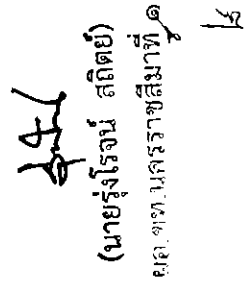 (นายรุ่งโรจน์ สถิตย์)
ผอ.ขท.นครราชสีมาที่ ๑